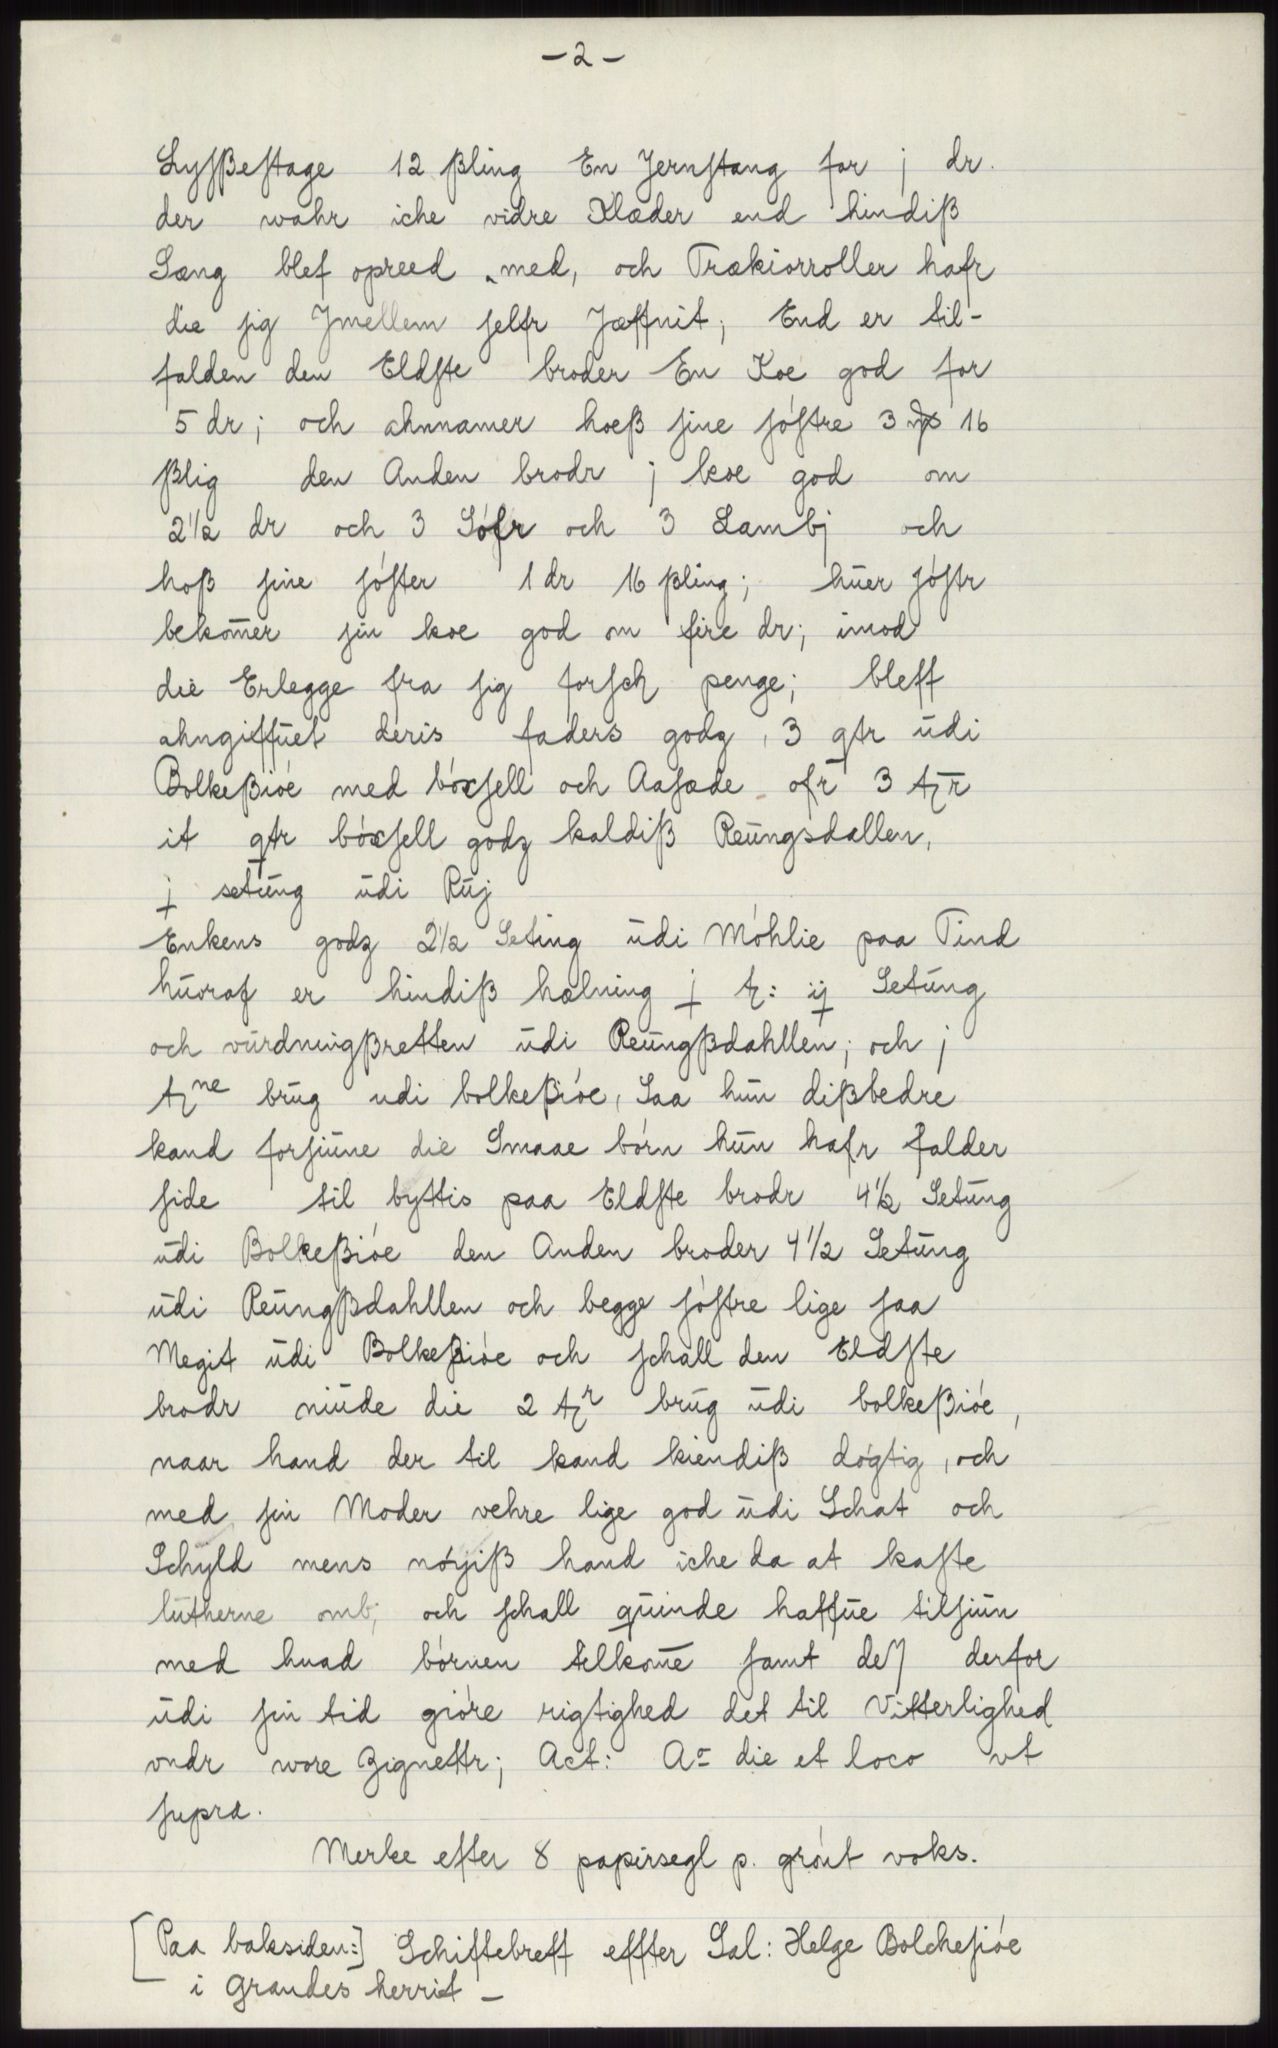 - 2 -
Lysßestage 12 ßling En Jernstang for j dr.
der wahr iche vidre Klæder end hindiß
Sæng blef opreed med, och Trækiorroller hafr
die sig Jmellem selfr Jæffnit; End er til-
falden den Eldste broder En Koe god for
5 dr; och ahnnamer hoeß sine sóstre 3 16
ßlig den Anden brodr j koe god om
2½ dr och 3 Sófr och 3 Lambj och
hoß sine sóster 1 dr 16 ßling; hŭer sóstr
bekom̄er sin koe god om fire dr; imod
die Erlegge fra sig forsch penge; bleff
ahngiffŭet deris faders godz, 3 qtr ŭdi
Bolkeßióe med bóxsell och Aasæde ofr 3 tz̄r
it qtr bóxsell godz kaldiß Reŭngsdallen,
j setŭng ŭdi Rŭj
Enkens godz 2½ Seting ŭdi Móhlie paa Tind
hŭoraf er hindiß hælning j tz: ij Setŭng
och vŭrdningßretten ŭdi Reŭngßdahllen; och j
tzne brŭg udi bolkeßióe, Saa hŭn dißbedre
kand forsiŭne die Smaae bórn hŭn hafr falder
side til byttis paa Eldste brodr 4½ Setŭng
ŭdi Bolkeßióe den Anden broder 4½ Setŭng
ŭdi Reŭngßdahllen och begge sóstre lige saa
Megit ŭdi Bolkeßióe och schall den Eldste
brodr niŭde die 2 tzr brŭg ŭdi bolkeßióe,
naar hand der til kand kiendiß dógtig, och
med sin Moder vehre lige god ŭdi Schat och
Schyld mens nóyiß hand iche da at kaste
lŭtherne omb; och schall qŭinde haffŭe tilsiŭn
med huad bórnen tilkom̄e samt de derfor
ŭdi sin tid gióre rigtighed det til Vitterlighed
vndr wore Zignettr; Act: Ao die et loco vt
supra.
Merke efter 8 papirsegl p. grónt voks.
[Paa baksiden:] Schiftebreff effter Sal: Helge Bolchesióe
i Grandes herrit -